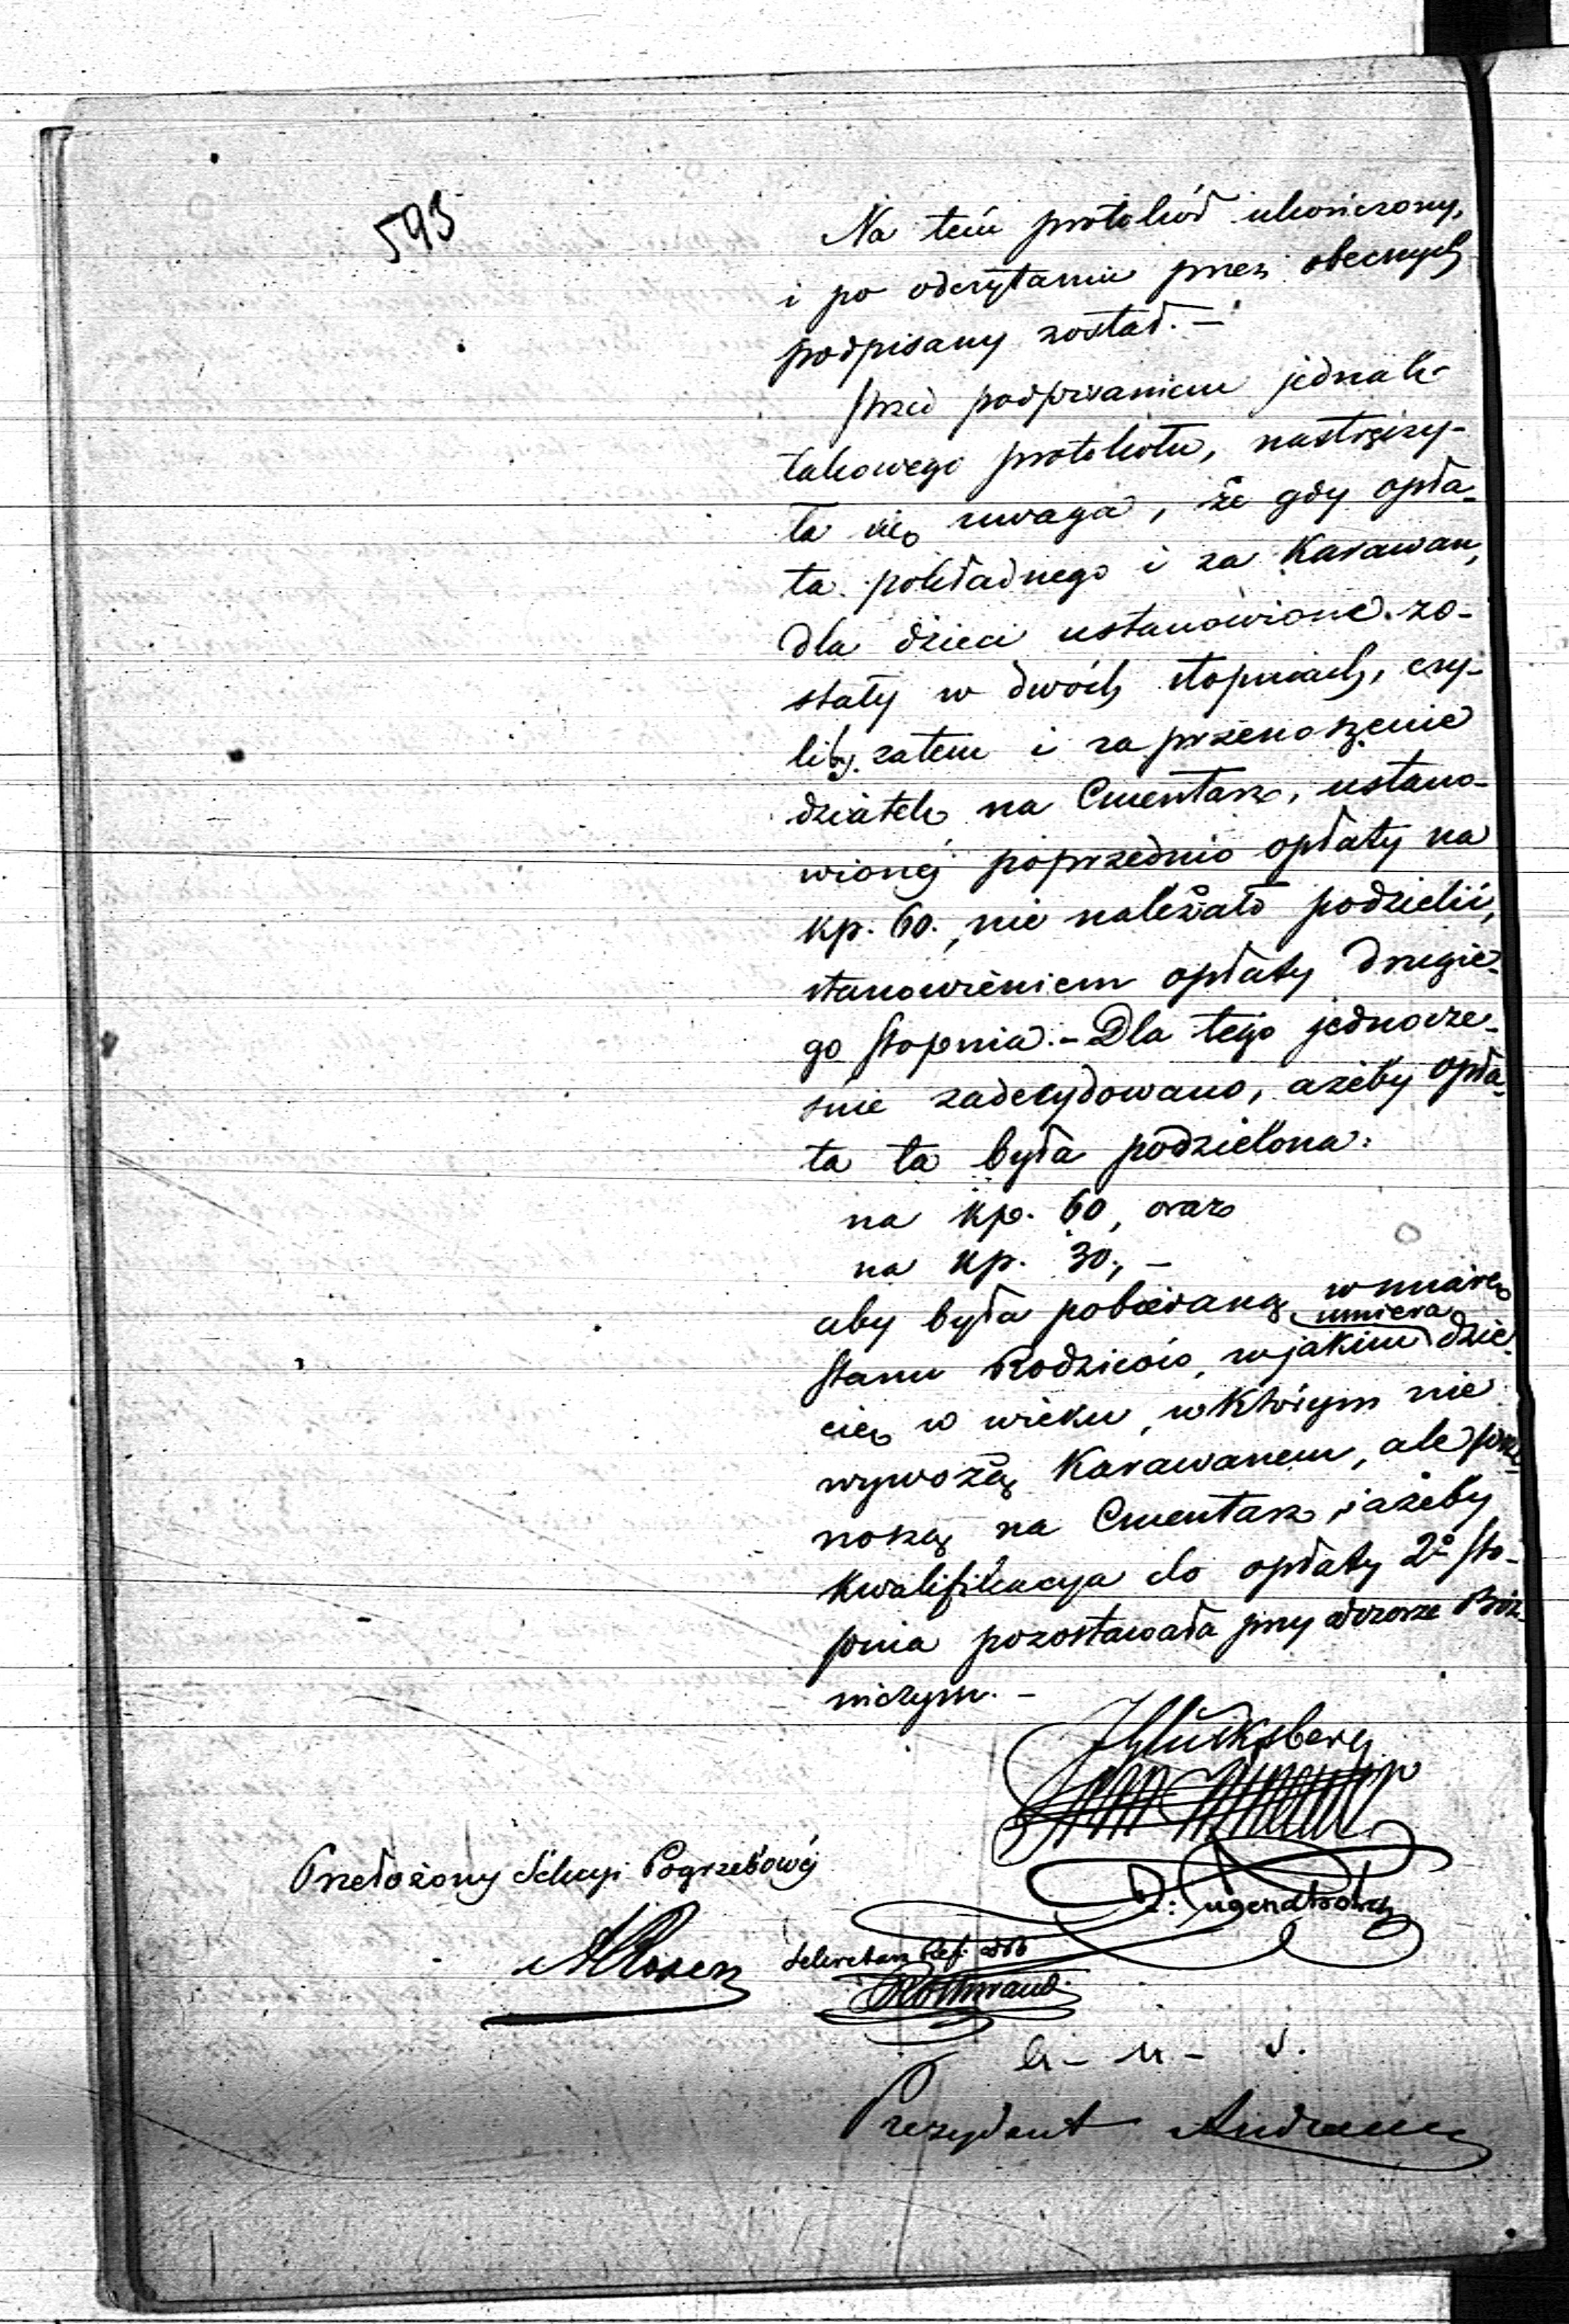 593
Na tém protokół ukończony,
i po odczytaniu przez obecnych
podpisany został. —
Przed podpisaniem jednak
takowego protokołu, nastręczy-
ła się uwaga, że gdy opła-
ta pokładnego i za Karawan,
dla dzieci ustanowione zo-
stały w dwóch stopniach, czy-
liby zatem i za przenoszenie
dziatek na Cmentarz, ustano-
wionéj poprzednio opłaty na
kp. 60., nie należało podzielić,
stanowieniem opłaty drugie-
go stopnia. – Dla tego jednocze-
śnie zadecydowano, ażeby opła-
ta ta była podzielona:
na kp. 60, oraz
na kp. 30, –
aby była pobieraną w miarę
stanu Rodziców, w jakim umiera dzie-
cię w wieku, w którym nie
wywożą Karawanem, ale prze-
noszą na Cmentarz, i ażeby
kwalifikacya do opłaty 2º sto-
pnia pozostawała przy dozorze Bóż-
niczym. –
J Glüksberg
J: Tugendhold
Przełożony Sekcyi Pogrzebowéj
ARosen
Sekretarz
Rothwand
Prezydent Andrault